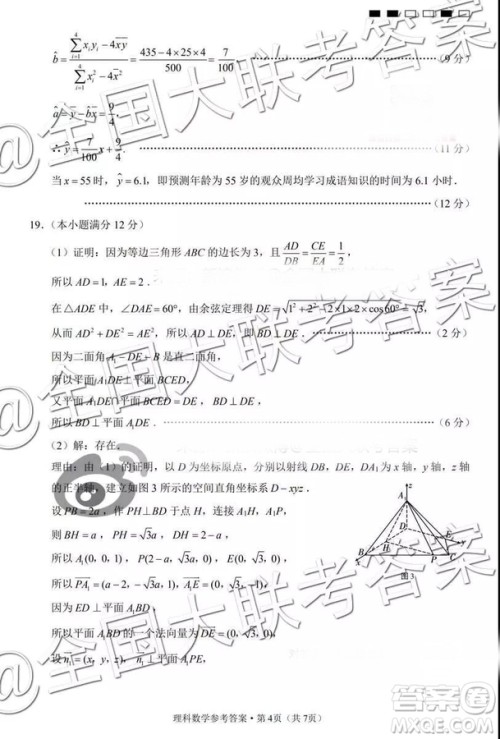 b̂ = (∑_{i=1}^{4} x_i y_i − 4x̄ȳ) / (∑_{i=1}^{4} x_i² − 4x̄²) = (435−4×25×4)/500 = 7/100 (9 分)
â = ȳ − b̂x̄ = 9/4.
∴ ŷ = 7/100 x + 9/4. (11 分)
当 x = 55 时, ŷ = 6.1, 即预测年龄为 55 岁的观众周均学习成语知识的时间为 6.1 小时.
(12 分)
19. (本小题满分 12 分)
(1) 证明: 因为等边三角形 ABC 的边长为 3, 且 AD/DB = CE/EA = 1/2,
所以 AD = 1, AE = 2.
在△ADE 中, ∠DAE = 60°, 由余弦定理得 DE = √(1²+2²−2×1×2×cos60°) = √3,
从而 AD² + DE² = AE², 所以 AD⊥DE, 即 BD⊥DE. (2 分)
因为二面角 A₁−DE−B 是直二面角,
所以平面 A₁DE⊥平面 BCED,
又平面 A₁DE∩平面 BCED = DE,
所以 BD⊥平面 A₁DE. (6 分)
(2) 解: 存在.
理由: 由 (1) 的证明, 以 D 为坐标原点, 分别以射线 DB, DE, DA₁ 为 x 轴, y 轴, z 轴
的正半轴, 建立如图 3 所示的空间直角坐标系 D−xyz.
设 PB = 2a, 作 PH⊥BD 于点 H, 连接 A₁H, A₁P,
则 BH = a, PH = √3a, DH = 2−a,
所以 A₁(0, 0, 1), P(2−a, √3a, 0), E(0, √3, 0),
所以 PA₁ = (a−2, −√3a, 1),
因为 ED⊥平面 A₁BD,
所以平面 A₁BD 的一个法向量为 DE = (0, √3, 0),
设 n₁ = (x, y, z)⊥平面 A₁PE,
z
A₁
D
E
y
B
H
P
C
x
图 3
理科数学参考答案·第 4 页 (共 7 页)
@全国大联考答案
@全国大联考答案
@全国大联考答案